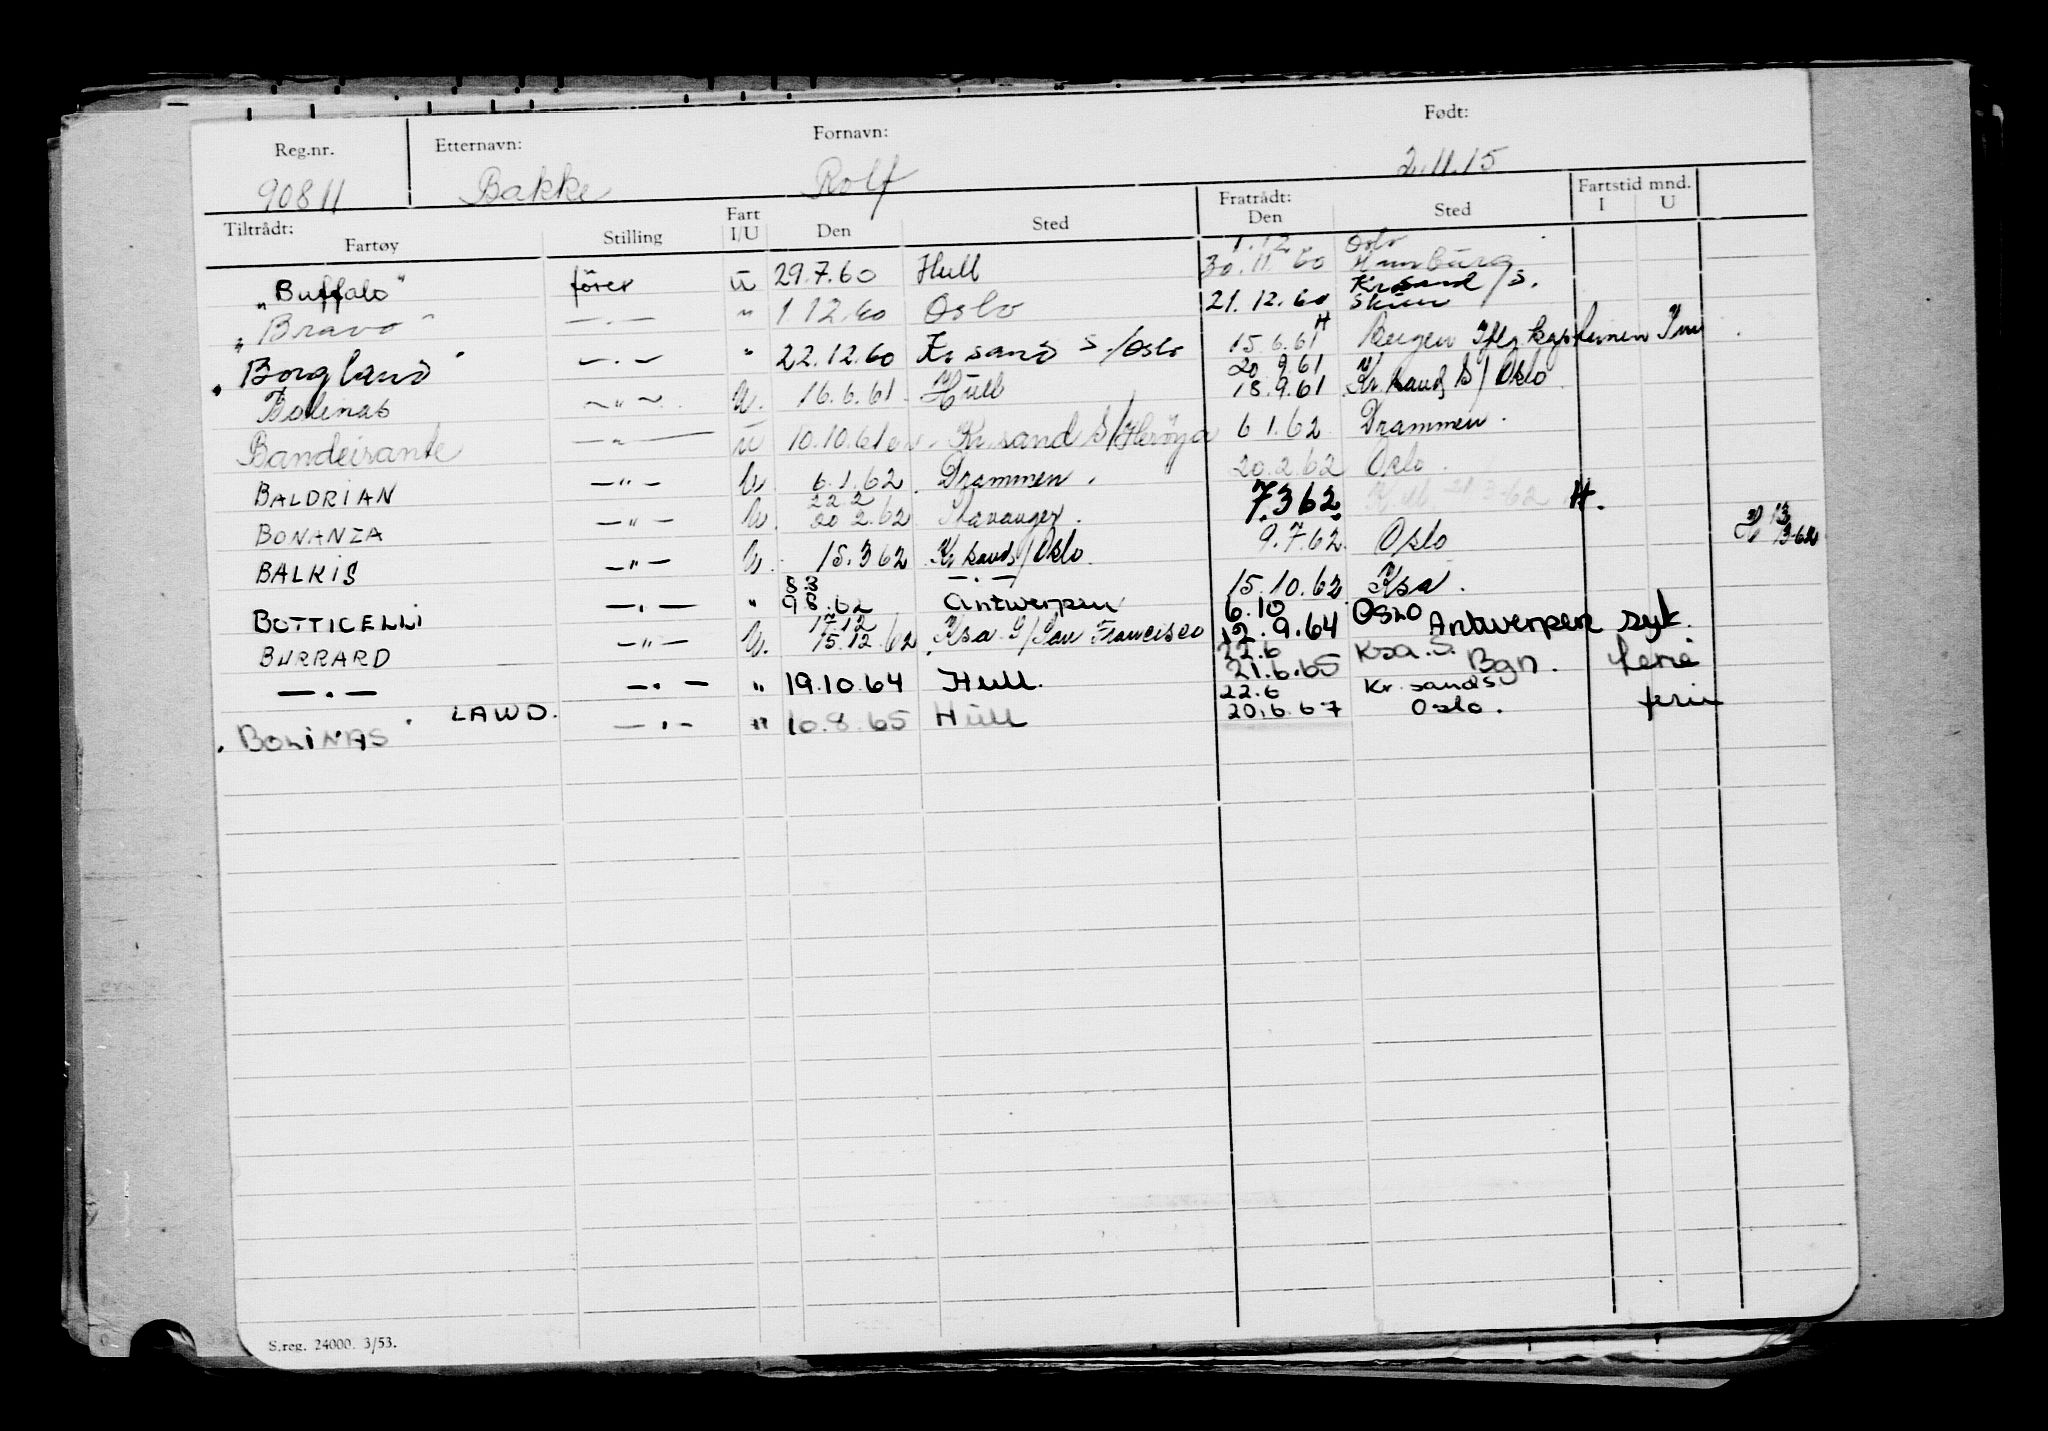 Reg.nr. Etternavn: Fornavn: Født:
90811 Bakke Rolf 2.11.15
Tiltrådt: Fratrådt: Fartstid mnd.
Fartøy Stilling Fart I/U Den Sted Den Sted I U
1.12. Oslo
"Buffalo" fører U 29.7.60 Hull 30.11.60 Hamburg
Kr.sand/S.
"Bravo" —.— " 1.12.60 Oslo 21.12.60
"Borgland" —.— " 22.12.60 Kr sand S./Oslo 15.6.61 H Bergen
20.9.61
Bolinas —"— U. 16.6.61 Hull 18.9.61 Kr.sand S/Oslo
Bandeirante —"— U 10.10.61 Kr.sand S/Herøya 6.1.62 Drammen.
BALDRIAN —"— U. 6.1.62. Drammen. 20.2.62 Oslo.
22.2
BONANZA —"— U. 20.2.62 Stavanger. 7.3.62 H.
BALKIS —"— U. 15.3.62 Kr sand S/Oslo. 9.7.62. Oslo
BOTTICELLI —.— " 62 Antwerpen 15.10.62 Ksa.
17.12 6.10 OSLO
BURRARD —"— U. 15.12.62. Ksa S/San Francisco 12.9.64 Antwerpen syk.
22.6 Ksa. S.
—.— —.— " 19.10.64 Hull. 21.6.65 Bgn. ferie
22.6 Kr. sand S
"BOLINAS" LAWD. —.— " 10.8.65 Hull 20.6.67 Oslo. ferie
S.reg. 24000. 3/53.